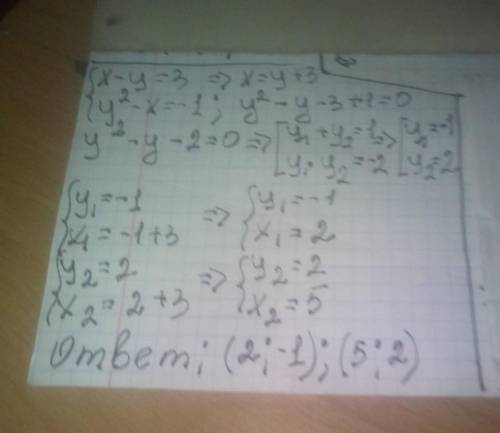 {x-y=3 => x=y+3
{y²-x=-1; y²-y-3+1=0
y²-y-2=0 => [y₁+y₂=1 => [y₁=-1
[y₁·y₂=-2 [y₂=2
{y₁=-1 => {y₁=-1
{x₁=-1+3 {x₁=2
{y₂=2 => {y₂=2
{x₂=2+3 {x₂=5
Ответ; (2;-1);(5;2)